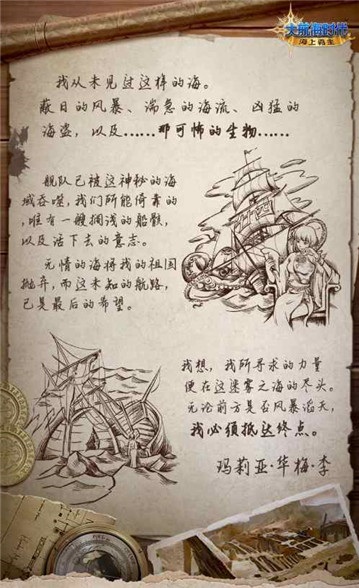 大航海时代
海上霸主
我从未见过这样的海。
蔽日的风暴、湍急的海流、凶猛的
海盗，以及……那可怖的生物……
舰队已被这神秘的海
域吞噬，我们所能倚靠的
，唯有一艘搁浅的船骸，
以及活下去的意志。
无情的海将我的祖国
抛弃，而这未知的航路，
已是最后的希望。
我想，我所寻求的力量
便在这迷雾之海的尽头。
无论前方是否风暴滔天，
我必须抵达终点。
玛莉亚·华梅·李